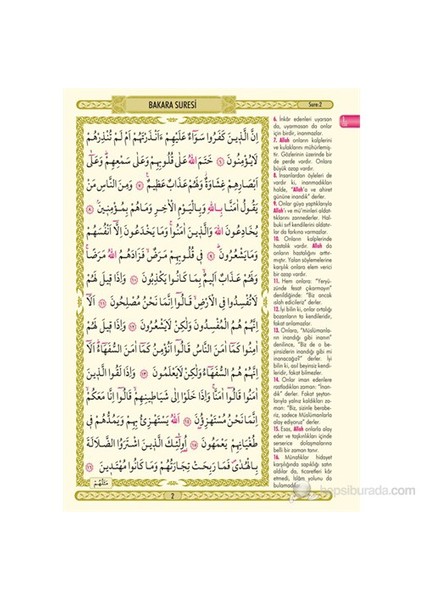 BAKARA SURESİ
Sure:2
اِنَّ الَّذ۪ينَ كَفَرُوا سَوَٓاءٌ عَلَيْهِمْ ءَاَنْذَرْتَهُمْ اَمْ لَمْ تُنْذِرْهُمْ
لَا يُؤْمِنُونَ ٦ خَتَمَ اللّٰهُ عَلٰى قُلُوبِهِمْ وَعَلٰى سَمْعِهِمْ وَعَلٰٓى
اَبْصَارِهِمْ غِشَاوَةٌ وَلَهُمْ عَذَابٌ عَظ۪يمٌ ٧ وَمِنَ النَّاسِ مَنْ
يَقُولُ اٰمَنَّا بِاللّٰهِ وَبِالْيَوْمِ الْاٰخِرِ وَمَا هُمْ بِمُؤْمِن۪ينَ ٨
يُخَادِعُونَ اللّٰهَ وَالَّذ۪ينَ اٰمَنُوا وَمَا يَخْدَعُونَ اِلَّٓا اَنْفُسَهُمْ
وَمَا يَشْعُرُونَ ٩ ف۪ي قُلُوبِهِمْ مَرَضٌ فَزَادَهُمُ اللّٰهُ مَرَضًا
وَلَهُمْ عَذَابٌ اَل۪يمٌ بِمَا كَانُوا يَكْذِبُونَ ١٠ وَاِذَا ق۪يلَ لَهُمْ
لَا تُفْسِدُوا فِي الْاَرْضِ قَالُٓوا اِنَّمَا نَحْنُ مُصْلِحُونَ ١١ اَلَٓا
اِنَّهُمْ هُمُ الْمُفْسِدُونَ وَلٰكِنْ لَا يَشْعُرُونَ ١٢ وَاِذَا ق۪يلَ لَهُمْ
اٰمِنُوا كَمَٓا اٰمَنَ النَّاسُ قَالُٓوا اَنُؤْمِنُ كَمَٓا اٰمَنَ السُّفَهَٓاءُ اَلَٓا
اِنَّهُمْ هُمُ السُّفَهَٓاءُ وَلٰكِنْ لَا يَعْلَمُونَ ١٣ وَاِذَا لَقُوا الَّذ۪ينَ
اٰمَنُوا قَالُٓوا اٰمَنَّا وَاِذَا خَلَوْا اِلٰى شَيَاط۪ينِهِمْ قَالُٓوا اِنَّا مَعَكُمْ
اِنَّمَا نَحْنُ مُسْتَهْزِؤُ۫نَ ١٤ اَللّٰهُ يَسْتَهْزِئُ بِهِمْ وَيَمُدُّهُمْ ف۪ي
طُغْيَانِهِمْ يَعْمَهُونَ ١٥ اُو۬لٰٓئِكَ الَّذ۪ينَ اشْتَرَوُا الضَّلَالَةَ
بِالْهُدٰى فَمَا رَبِحَتْ تِجَارَتُهُمْ وَمَا كَانُوا مُهْتَد۪ينَ ١٦
مَثَلُهُمْ
2
6. İnkâr edenleri uyarsan
da, uyarmasan da onlar
için birdir, inanmazlar.
7. Allah onların kalplerini
ve kulaklarını mühürlemiş-
tir. Gözlerinin üzerinde bir
de perde vardır. Onlara
büyük azap vardır.
8. İnsanlardan öyleleri de
vardır ki, inanmadıkları
halde, "Allah'a ve ahiret
gününe inandık" derler.
9. Onlar güya yaptıklarıyla
Allah'ı ve mü'minleri aldat-
tıklarını zannederler. Hal-
buki sırf kendilerini aldatır-
lar da farkına varmazlar.
10. Onların kalplerinde
hastalık vardır. Allah da
onların hastalığını arttır-
mıştır. Yalan söylemelerine
karşılık onlara elem verici
bir azap vardır.
11. Hem onlara: "Yeryü-
zünde fesat çıkarmayın"
denildiğinde: "Biz ancak
ıslah edicileriz" derler.
12. İyi bilin ki, onlar ortalığı
bozanların ta kendileridir,
fakat anlamazlar.
13. Onlara, "Müslümanla-
rın inandığı gibi inanın"
denilince, "Biz de o be-
yinsizlerin inandığı gibi mi
inanacağız?" derler. İyi
bilin ki, asıl beyinsiz kendi-
leridir, fakat bilmezler.
14. Onlar iman edenlere
rastladıkları zaman: "İnan-
dık" derler. Fakat şeytan-
larıyla yalnız kaldıkları za-
man: "Biz, sizinle berabe-
riz, sadece Müslümanlarla
alay ediyoruz" derler.
15. Esas, Allah onlarla alay
eder ve taşkınlıkları içinde
serserice dolaşmalarına
belli bir zaman tanır.
16. Münafıklar hidayet
karşılığında sapıklığı satın
aldılar da, ticaretleri kâr
etmedi, İslam yolunu da
bulamadılar.
hepsiburada.com